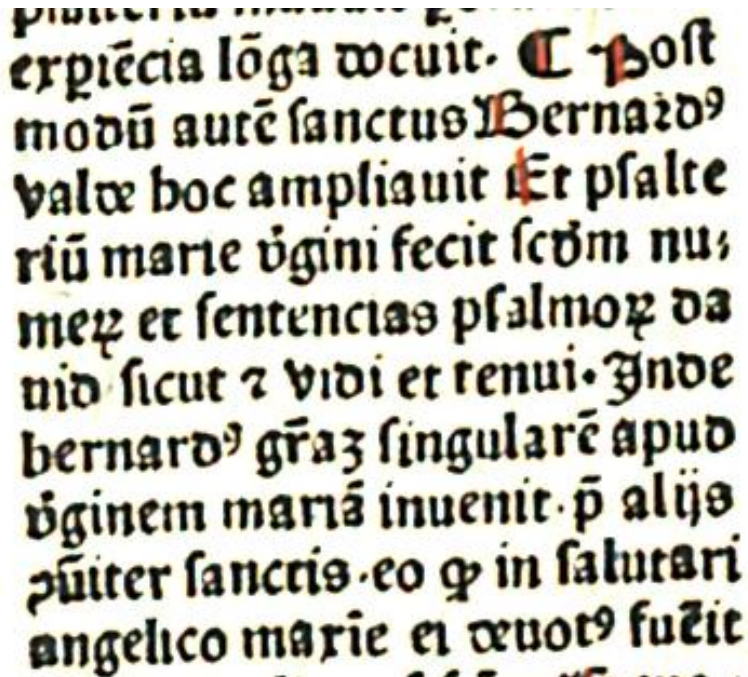 exꝑiēcia lōga docuit. ¶ Post
modū autē sanctus Bernardꝰ
valde hoc ampliauit Et psalte
riū marie v̓gini fecit scd̓m nu⸗
meꝝ et sentencias psalmoꝝ da
uid sicut ⁊ vidi et tenui. Inde
bernardꝰ gr̄aꝫ singularē apud
v̓ginem mariā inuenit. p̄ alijs
ꝯūiter sanctis. eo ꝙ in salutari
angelico mar̄ie ei deuotꝰ fue̅it